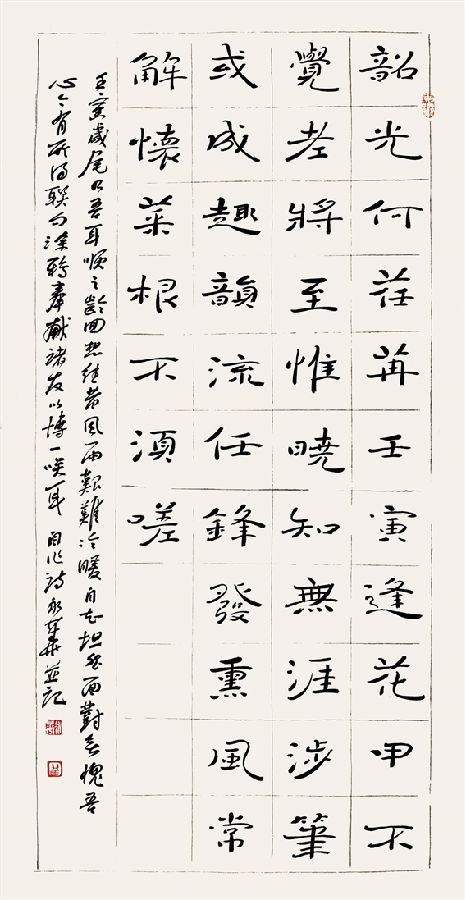 韶光何荏苒壬寅逢花甲不
覺老將至惟曉知無涯涉筆
或成趣韻流任鋒發熏風常
解懷菜根不須嗟
壬寅歲尾乃吾耳順之齡回想往昔風雨艱難冷暖自知坦然面對無愧吾
心有所得聯句塗鴉奉獻諸友以博一咲耳 自作詩永華並記